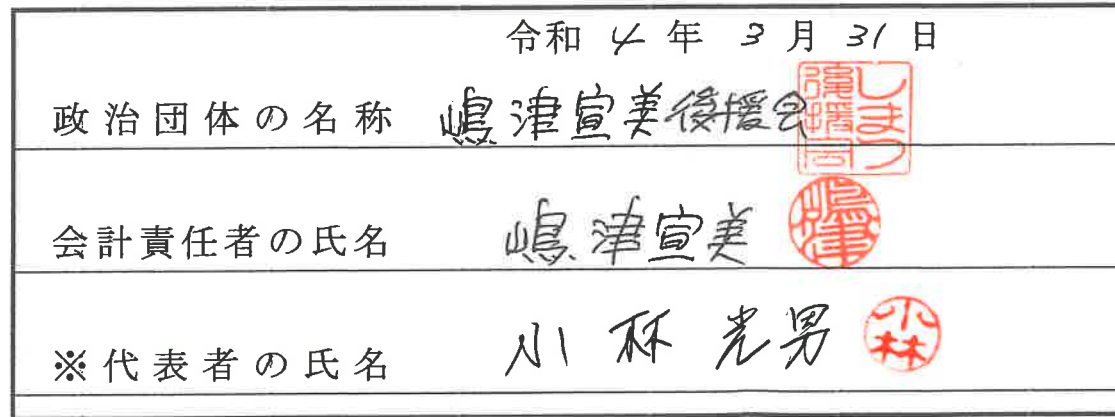 令和 4 年 3 月 31 日
政治団体の名称 嶋津宣美後援会 しまづ後援会
会計責任者の氏名 嶋津宣美 嶋津
※代表者の氏名 小林光男 小林